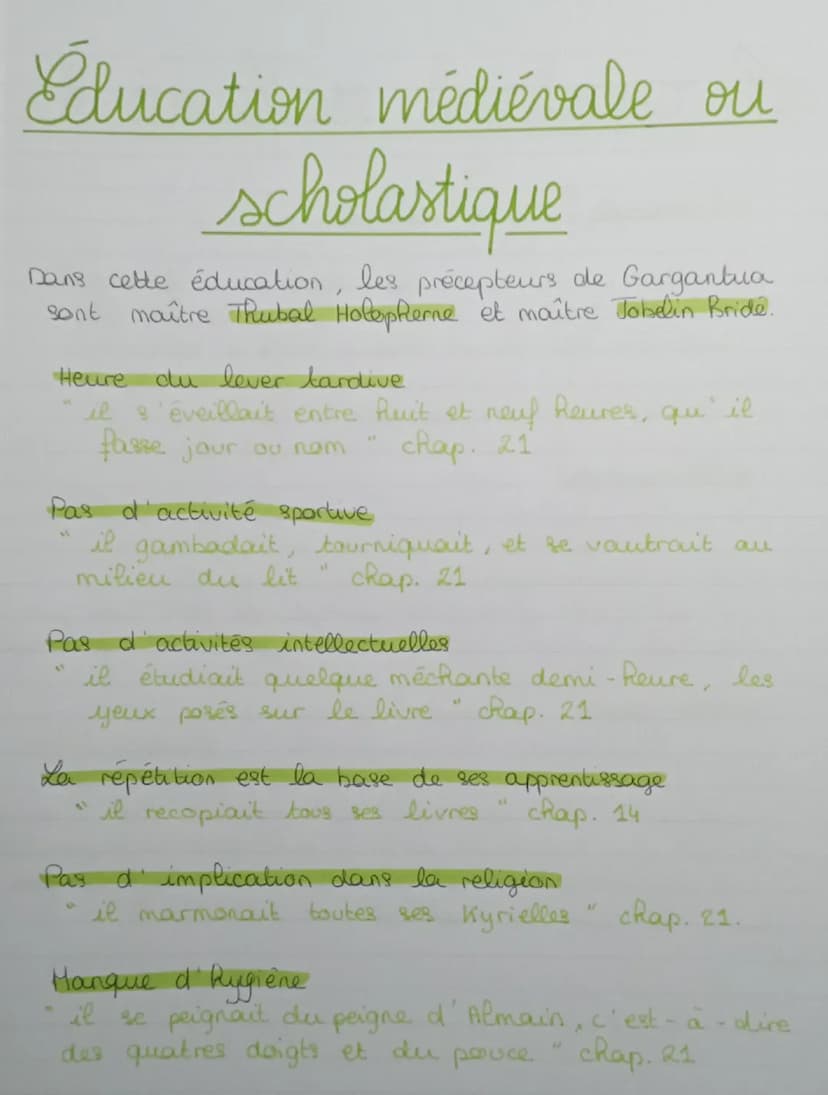 Éducation médiévale ou
scholastique
Dans cette éducation, les précepteurs de Gargantua
sont maître Thubal Holopherne et maître Jobelin Bridé.
Heure du lever tardive
" il s'éveillait entre huit et neuf heures, qu'il
fasse jour ou nom " chap. 21
Pas d'activité sportive
" il gambadait, tourniquait, et se vautrait au
milieu du lit " chap. 21
Pas d'activités intellectuelles
" il étudiait quelque méchante demi-heure, les
yeux posés sur le livre " chap. 21
La répétition est la base de ses apprentissage
" il recopiait tous ses livres " chap. 14
Pas d'implication dans la religion
" il marmonait toutes ses Kyrielles " chap. 21.
Manque d'hygiène
" il se peignait du peigne d'Almain, c'est-à-dire
des quatres doigts et du pouce " chap. 21